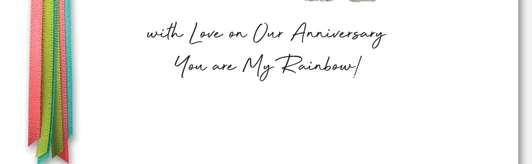 with Love on Our Anniversary
You are My Rainbow!